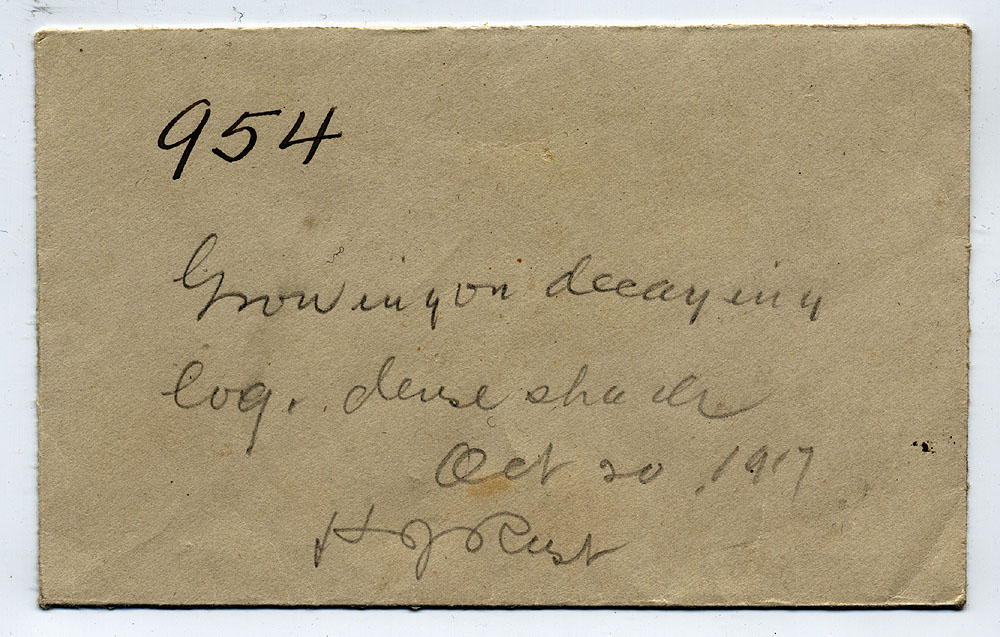 954
Growing on decaying
log. dense shade
Oct 20, 1917
H J Rust